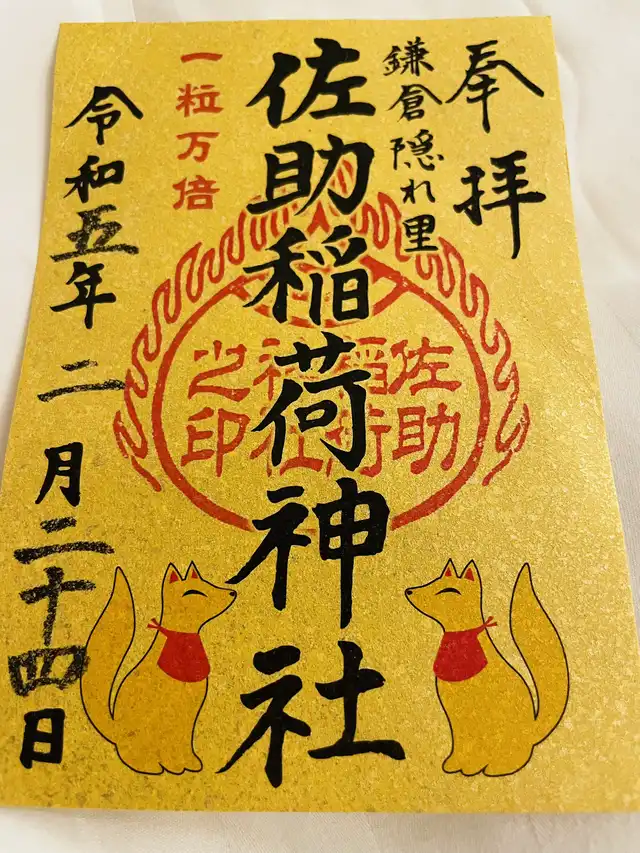 奉拝
鎌倉隠れ里
佐助稲荷神社
佐助
稲荷
神社
之印
一粒万倍
令和五年二月二十四日